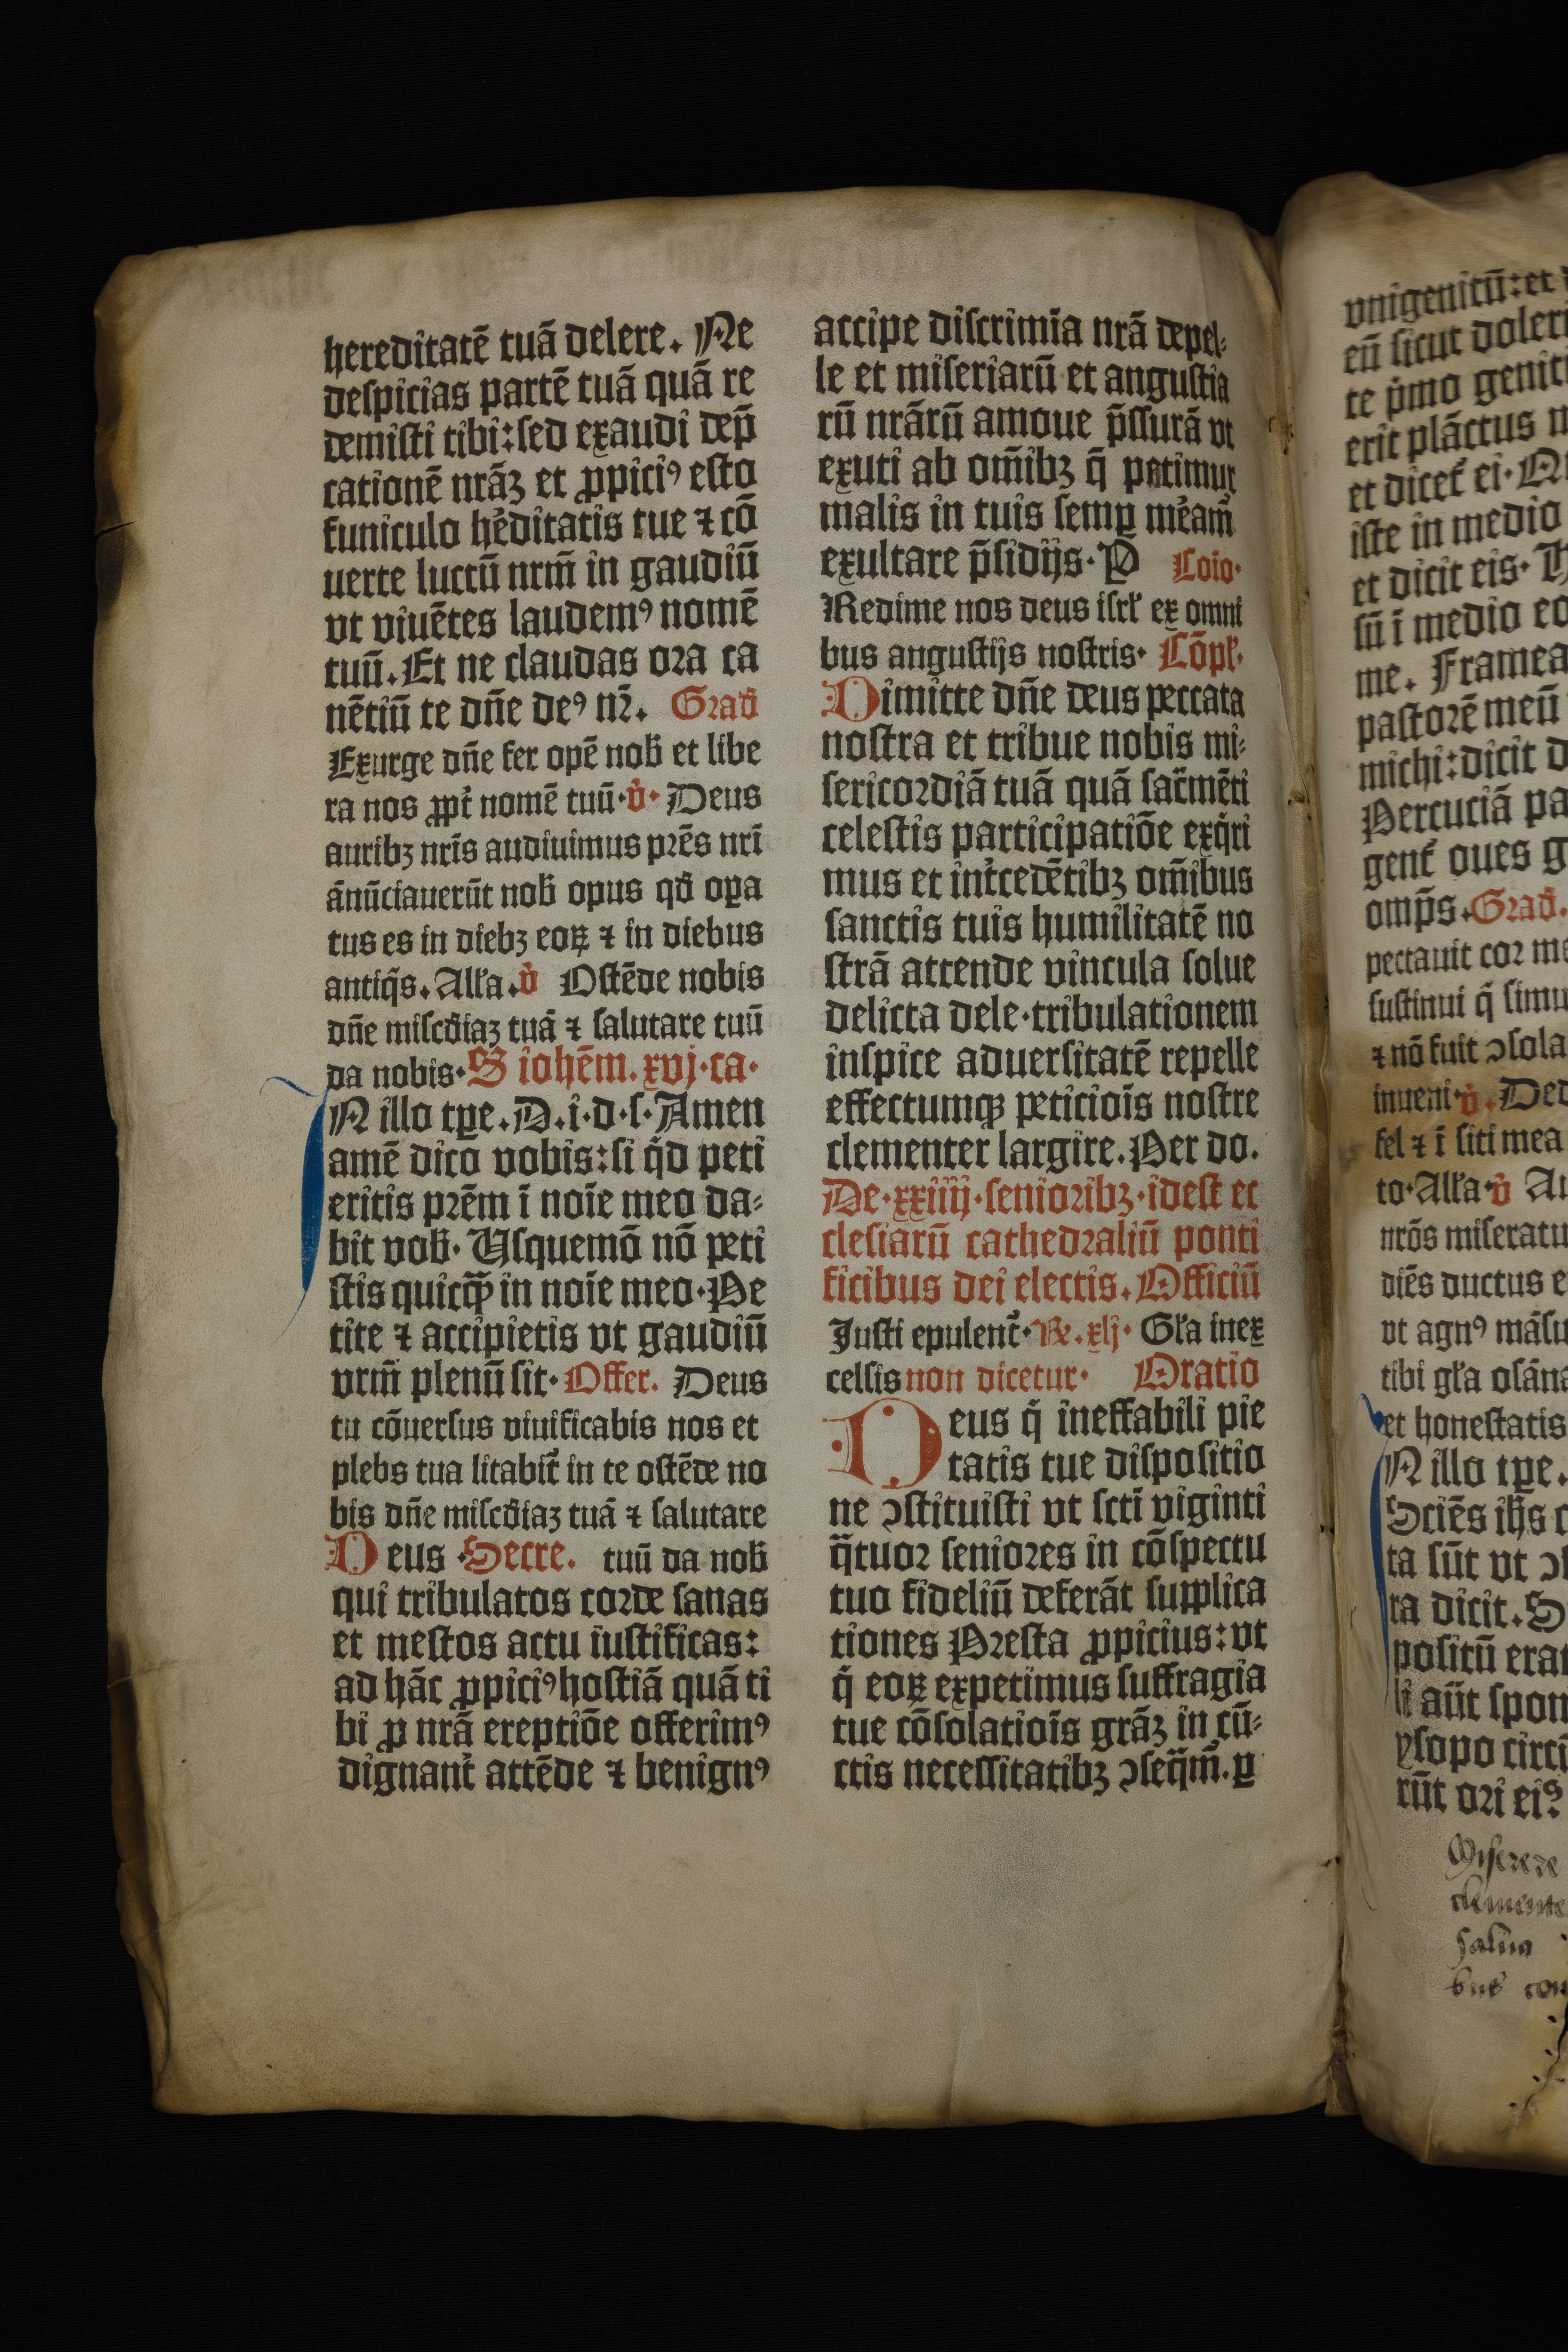 hereditatē tuā delere. Ne
despicias partē tuā quā re
demisti tibi: sed exaudi dep̄
cationē nrāꝫ et ꝓpiciꝰ esto
funiculo hēditatis tue ⁊ cō
uerte luctū nrm̄ in gaudiū
vt viuētes laudemꝰ nomē
tuū. Et ne claudas ora ca
nētiū te dn̄e deꝰ nr̄. Grad̄
Exurge dn̄e fer opē nob̄ et libe
ra nos ꝓpt̄ nomē tuū. v̓. Deus
auribꝫ nrīs audiuimus prēs nrī
ānūciauerūt nob̄ opus qd̄ oꝑa
tus es in diebꝫ eoꝝ ⁊ in diebus
antiq̄s. Alla. v̓ Ostēde nobis
dn̄e misc̄diaꝫ tuā ⁊ salutare tuū
da nobis. S iohēm. xvj. ca.
N illo tꝑe. D. i. d. s. Amen
amē dico vobis: si qd̓ peti
eritis prēm ī noīe meo da⸗
bit vob̄. Usquemō nō peti
stis quicq̄ꝫ in noīe meo. Pe
tite ⁊ accipietis vt gaudiū
vrm̄ plenū sit. Offer. Deus
tu cōuersus viuificabis nos et
plebs tua litabit̄ in te ostēde no
bis dn̄e misc̄diaꝫ tuā ⁊ salutare
Deus Secre. tuū da nob̄
qui tribulatos corde sanas
et mestos actu iustificas:
ad hāc ꝓpiciꝰ hostiā quā ti
bi ꝓ nrā ereptiōe offerimꝰ
dignant̓ attēde ⁊ benignꝰ
accipe discrimīa nrā depel⸗
le et miseriarū et angustia
rū nrārū amoue p̄ssurā vt
exuti ab om̄ibꝫ q̄ patimur
malis in tuis semꝑ mēam̄
exultare p̄sidijs. P Coīo.
Redime nos deus isrł ex omni
bus angustijs nostris. Cōpł.
Dimitte dn̄e deus peccata
nostra et tribue nobis mi⸗
sericordiā tuā quā sac̄mēti
celestis participatiōe exq̄ri
mus et int̓cedētibꝫ om̄ibus
sanctis tuis humilitatē no
strā attende vincula solue
delicta dele. tribulationem
inspice aduersitatē repelle
effectumqꝫ peticiois nostre
clementer largire. Per do.
De. xxiiij. senioribꝫ. idest ec
clesiarū cathedraliū ponti
ficibus dei electis. Officiū
Justi epulent̄. Re. xlj. Gła inex
celsis non dicetur. Oratio
Deus q̄ ineffabili pie
tatis tue dispositio
ne ꝯstituisti vt sctī viginti
q̄tuor seniores in cōspectu
tuo fideliū deferāt supplica
tiones Presta ꝓpicius: vt
q̄ eoꝝ expetimus suffragia
tue cōsolatiois grāꝫ in cū⸗
ctis necessitatibꝫ ꝯseq̄m̄. ꝑ
vnigenitū: et
eū sicut doler
te p̓mo genit
erit plāctus
et dicet̄ ei.
iste in medio
et dicit eis.
sū ī medio
me. Framea
pastorē meū
michi: dicit
Percuciā pa
gent̄ oues g
omp̄s. Grad̄.
pectauit cor
sustinui q̄ simu
⁊ nō fuit ꝯsola
inueni. v̓. Ded
fel ⁊ ī siti mea
to. Alla. v̓
nrōs miseratu
diēs ductus e
vt agnꝰ māsu
tibi gła osāna
et honestatis
N illo tꝑe.
Sciēs ih̄s
ta sūt vt
ra dicit.
positū erat
li aūt spon
ysopo circū
rūt ori eiꝰ
Miserere
clemente
salua
bus